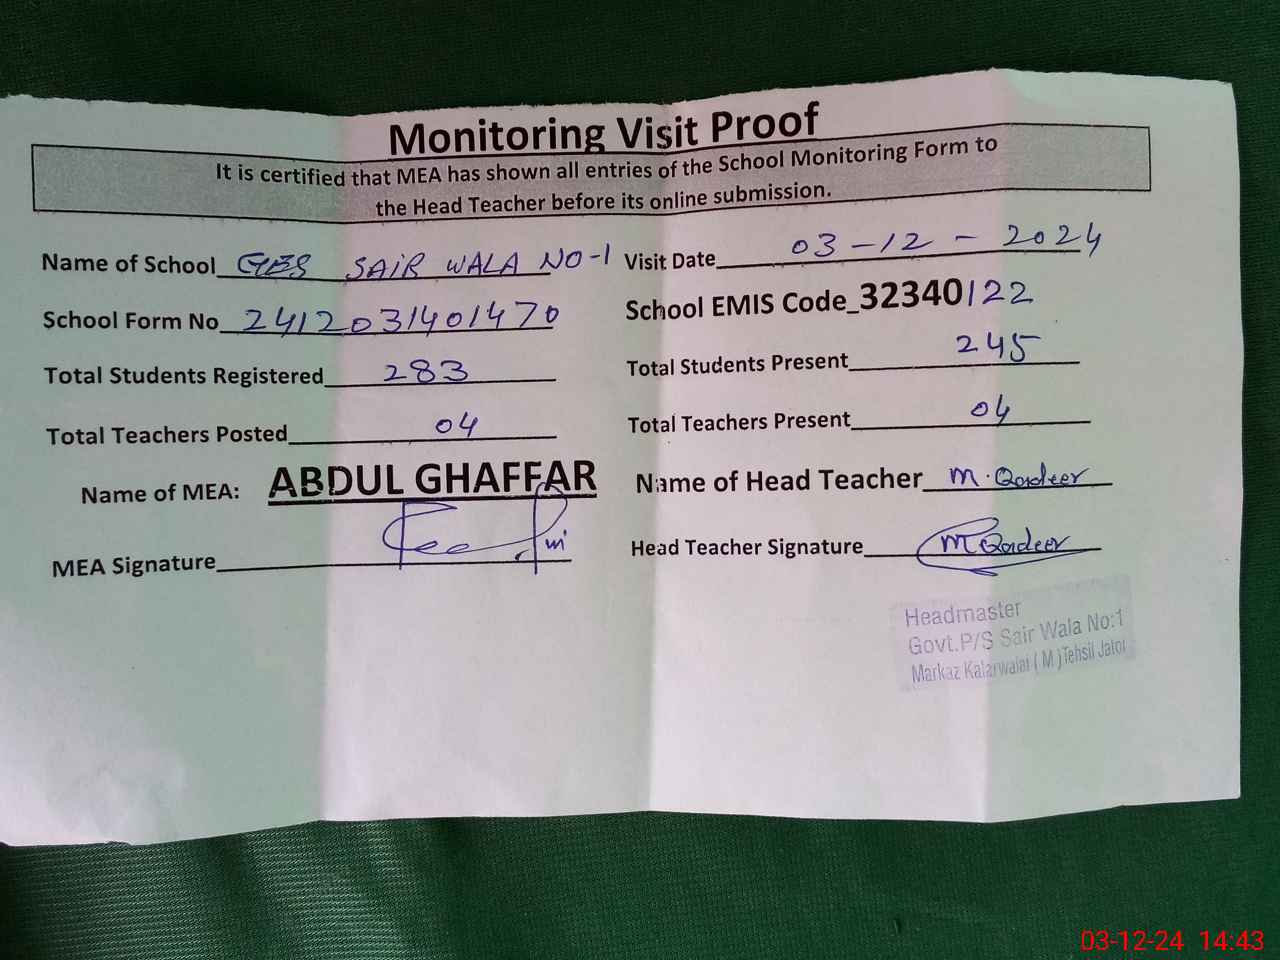 Monitoring Visit Proof
It is certified that MEA has shown all entries of the School Monitoring Form to
the Head Teacher before its online submission.
Name of School SAIR WALA NO-1 Visit Date 03-12-2024
School Form No 2412031401470 School EMIS Code_32340122
Total Students Registered 283 Total Students Present 245
Total Teachers Posted 04 Total Teachers Present 04
Name of MEA: ABDUL GHAFFAR Name of Head Teacher M. Qadeer
MEA Signature Head Teacher Signature M Qadeer
Headmaster
Govt.P/S Sair Wala No:1
Markaz Kalarwalai ( M ) Tehsil Jatoi
03-12-24 14:43